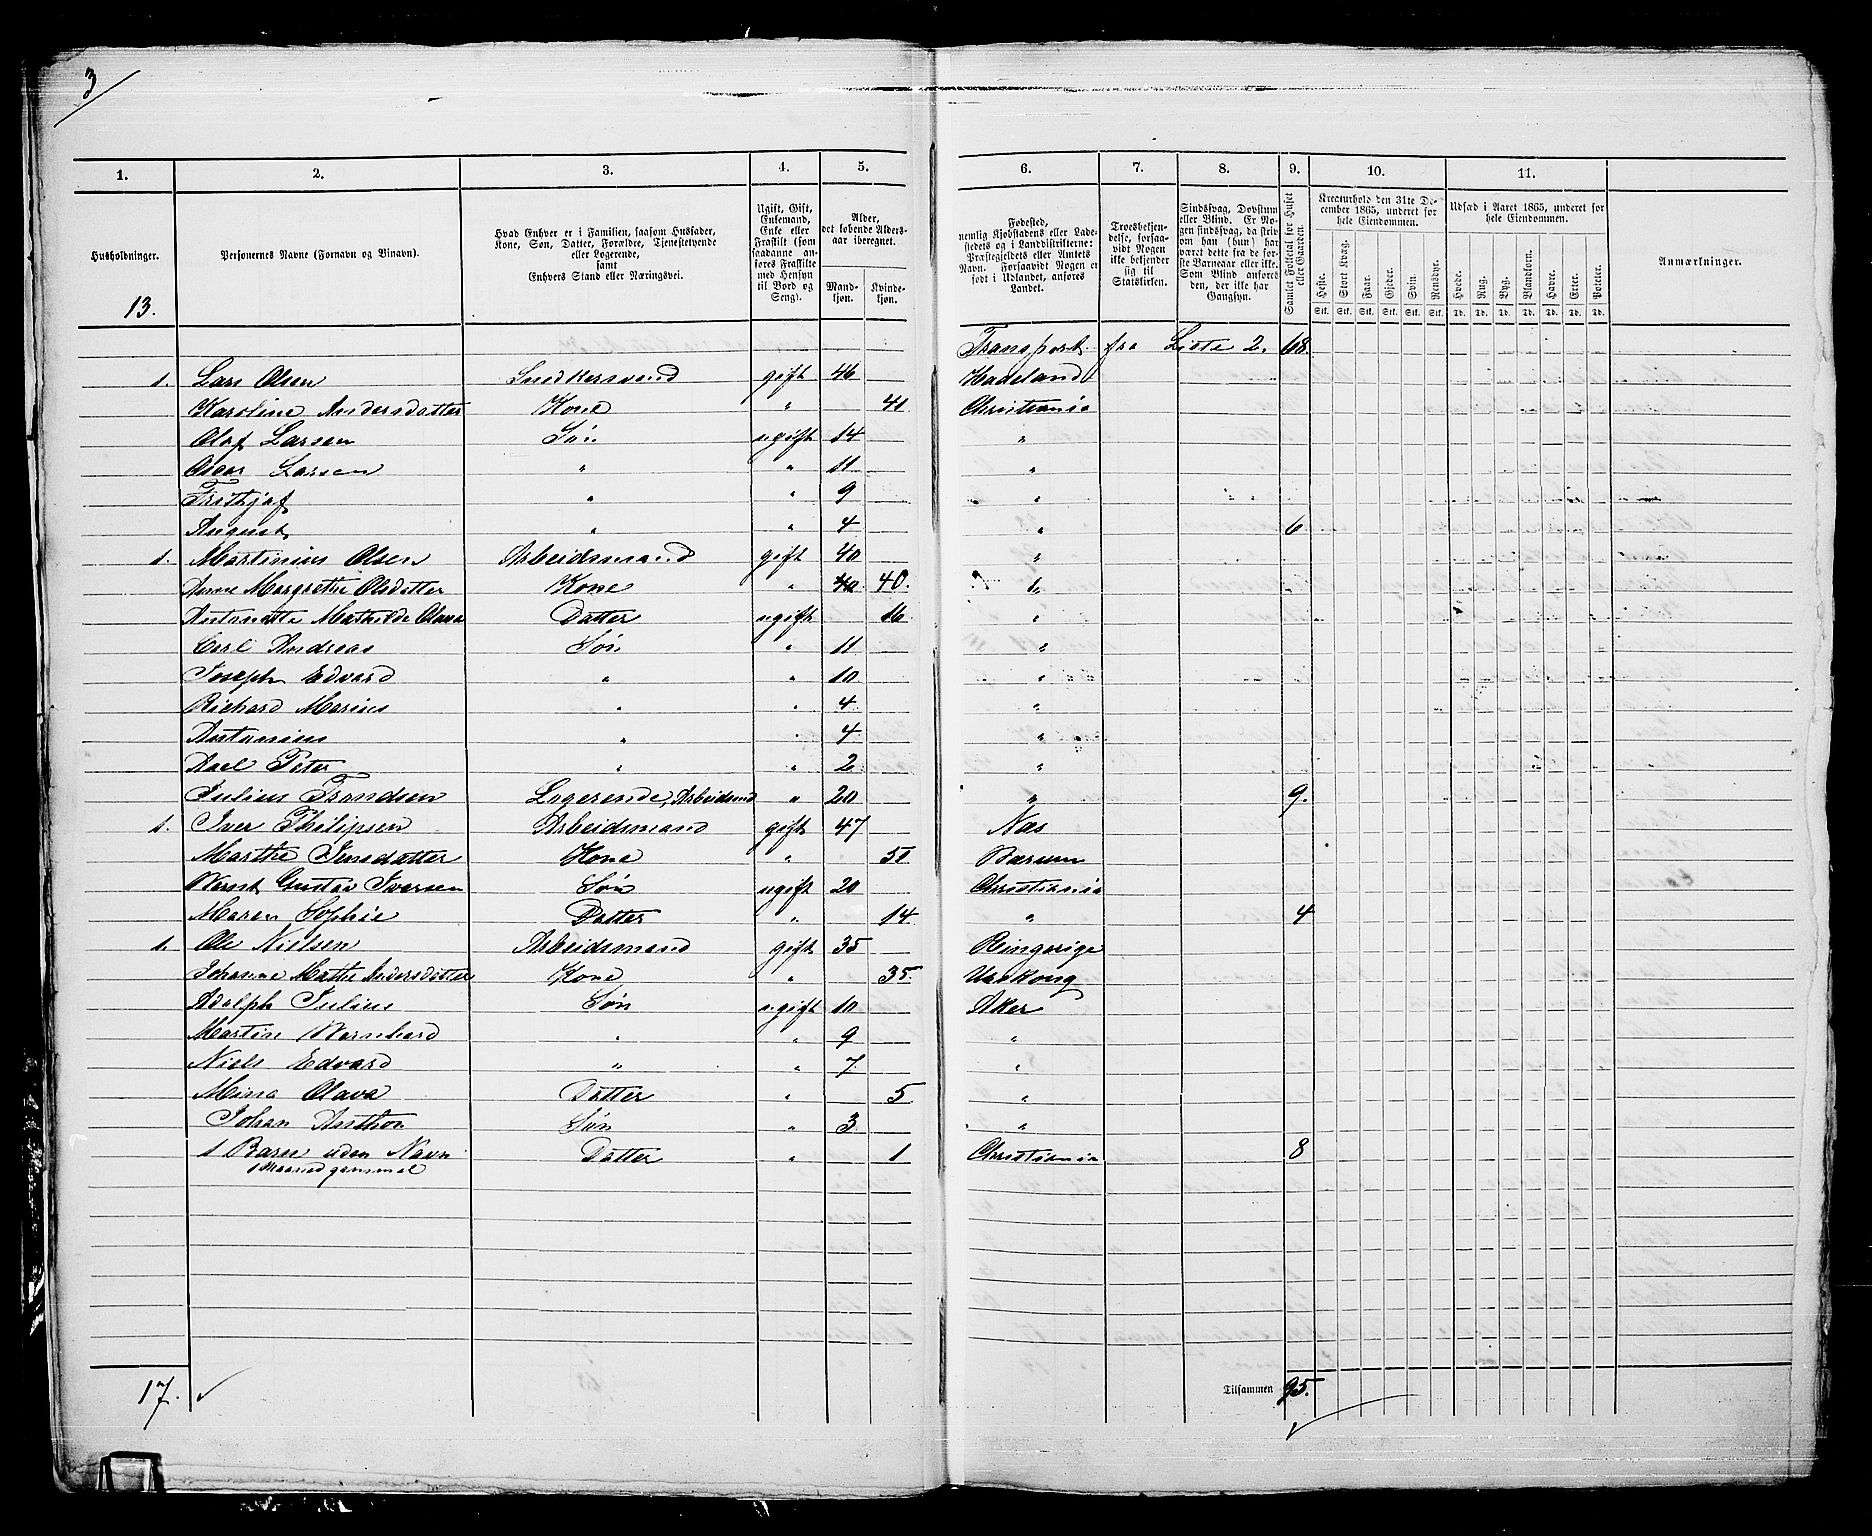 3
1. 2. 3. 4. 5. 6. 7. 8. 9. 10. 11.
Husholdninger.
Personernes Navne (Fornavn og Binavn).
Hvad Enhver er i Familien, saasom Husfader, Kone, Søn, Datter, Forældre, Tjenestetyende eller Logerende, samt Enhvers Stand eller Næringsvei.
Ugift, Gift, Enkemand, Enke eller Fraskilt (som saadanne anføres Fraskilte med Hensyn til Bord og Seng).
Alder, det løbende Aldersaar iberegnet.
Mandkjøn. Kvindekjøn.
Fødested, nemlig Kjøbstadens eller Ladestedets og i Landdistrikterne: Præstegjeldets eller Amtets Navn. Forsaavidt Nogen er født i Udlandet, anføres Landet.
Troesbekjendelse, forsaavidt Nogen ikke bekjender sig til Statskirken.
Sindssvag, Døvstum eller Blind. Er Nogen sindssvag, da skrives om han (hun) har været dette fra de første Barneaar eller ikke. Som Blind anføres den, der ikke har Gangsyn.
Samlet Folketal for Huset eller Gaarden.
Kreaturhold den 31te December 1865, underet for hele Eiendommen.
Heste. Stort Kvæg. Faar. Gjeder. Svin. Rensdyr.
Udsæd i Aaret 1865, underet for hele Eiendommen.
Hvede. Rug. Byg. Blandkorn. Havre. Erter. Poteter.
Anmærkninger.
Stk. Stk. Stk. Stk. Stk. Stk. Td. Td. Td. Td. Td. Td. Td.
13.
Transport fra Liste 2. 68.
1. Lars Olsen Snedkersvend gift 46 Hadeland
Karoline Andersdatter Kone " 41 Christiania
Olaf Larsen Søn ugift 14 "
Oscar Larsen " " 11 "
Frithjof " " 9 "
August " " 4 " 6
1. Martinius Olsen Arbeidsmand gift 40 "
Anne Margrethe Olsdatter Kone " 40 40. "
Antonette Mathilde Olava Datter ugift 16 "
Carl Andreas Søn " 11 "
Joseph Edvard " " 10 "
Richard Marius " " 4 "
Antonius " " 4 "
Axel Peter " " 2 "
Julius Frandsen Logerende, Arbeidsmd " 20 " 9.
1. Iver Philipsen Arbeidsmand gift 47 Næs
Marthe Jensdatter Kone " 51 Bærum
Bernt Gustav Iversen Søn ugift 20 Christiania
Maren Sophie Datter " 14 " 4
1. Ole Nielsen Arbeidsmand gift 35 Ringerige
Johanne Mathe Andersdatter Kone " 35. Urskoug
Adolph Julius Søn ugift 10 Aker
Martin Bernhard " " 9 "
Niels Edvard " " 7 "
Mina Olava Datter " 5 "
Johan Anthon Søn " 3 "
1 Barn uden Navn Datter " 1 Christiania 8
1 Maaned gammel
17. Tilsammen 95.